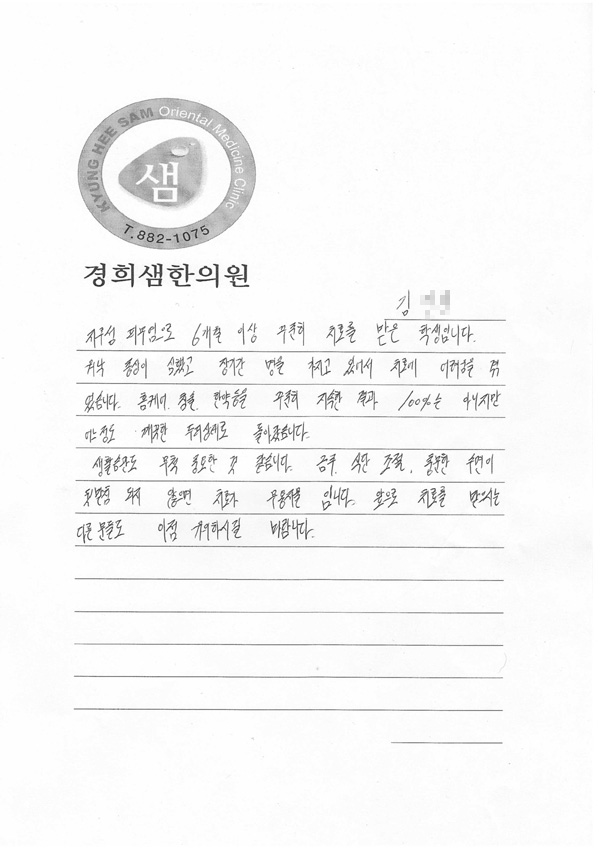 KYUNG HEE SAM Oriental Medicine Clinic
샘
T.882-1075
경희샘한의원
김
지루성 피부염으로 6개월 이상 꾸준히 치료를 받은 학생입니다.
워낙 증상이 심했고 장기간 병을 가지고 있어서 치료에 어려움을 겪
었습니다. 홈케어, 침, 한약등을 꾸준히 지속한 결과 100%는 아니지만
어느정도 깨끗한 두피상태로 돌아왔습니다.
생활습관도 무척 중요한 것 같습니다. 금주, 식단 조절, 충분한 수면이
뒷받침 되지 않으면 치료가 무용지물 입니다. 앞으로 치료를 받으시는
다른 분들도 이점 유의하시길 바랍니다.